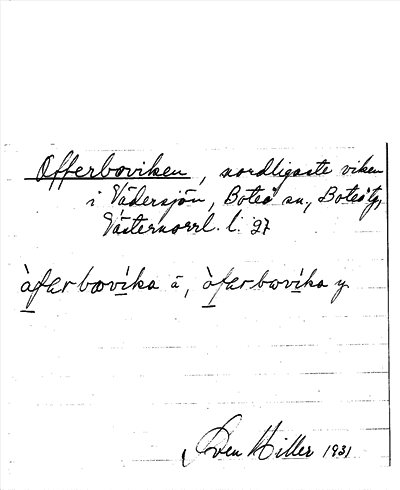 Offerboviken, nordligaste viken
i Vädersjön, Boteå sn., Boteå tg,
Västernorrl. l. 27
àfarbœvíka ä, àfarbœvíka y
Sven Hiller 1931